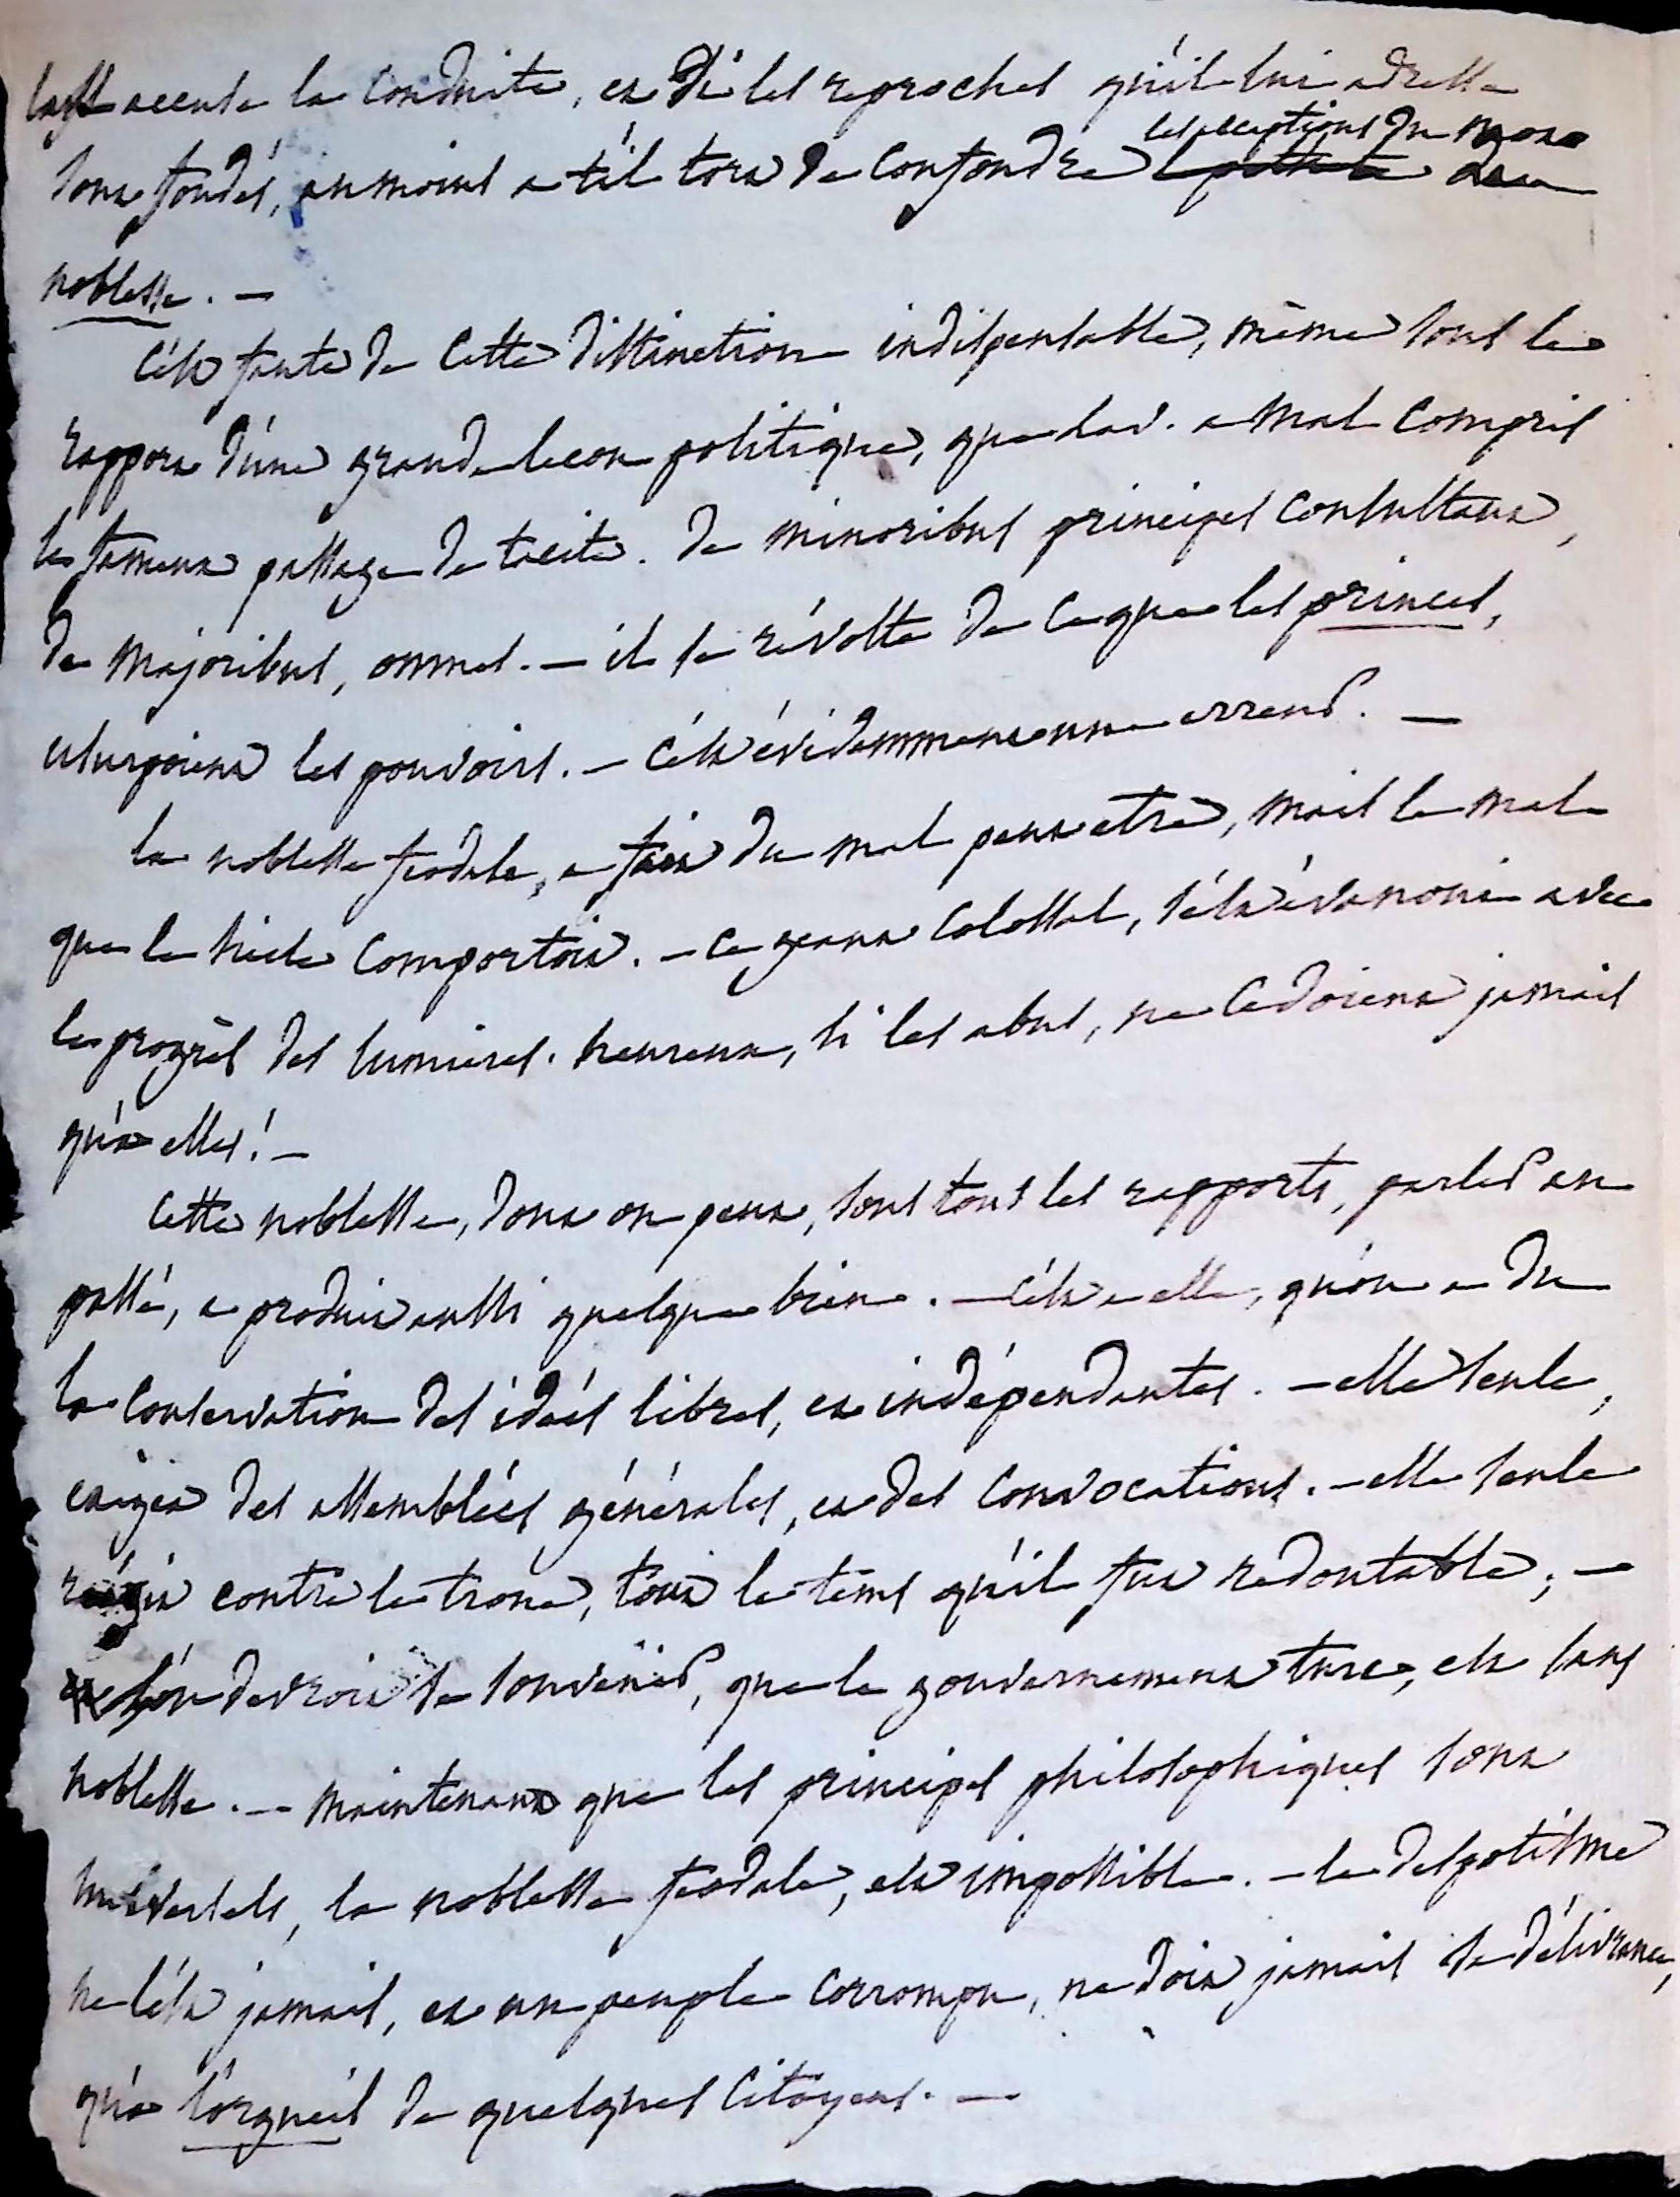 accuse la conduite, et si les reproches qu'il lui adresse
les acceptions du mot
sont fondés, au moins a t'il tort de confondre
noblesse. —
C'est faute de cette distinction indispensable, même sous le
rapport d'une grande lecon politique, que a mal compris
le fameux passage de tacite. de minoribus principes consultant,
de majoribus, omnes. — il se révolte de ce que les princes,
usurpoient les pouvoirs. — C'est évidemment une erreur. —
la noblesse feodale, a fait du mal peut etre, mais le mal
que le siecle comportoit. — ce geant colossal, s'est évanoui avec
le progrès des lumieres. heureux, si les abus, ne cedoient jamais
qu'a elles! —
Cette noblesse, dont on peut, sous tous les rapports, parler au
passé, a produit aussi quelque bien. — C'est a elle, qu'on a du
la conservation des idées libres, et indépendantes. — elle seule,
exigea des assemblées générales, et des convocations. — elle seule
réagit contre le trone, tout le tems qu'il fut redoutable; —
l'on devroit se souvenir, que le gouvernement turc, est sans
noblesse. — maintenant que les principes philosophiques sont
universels, la noblesse feodale, est impossible. — le despotisme
ne l'est jamais, et un peuple corrompu, ne doit jamais sa délivrance,
qu'a l'orgueil de quelques citoyens. —